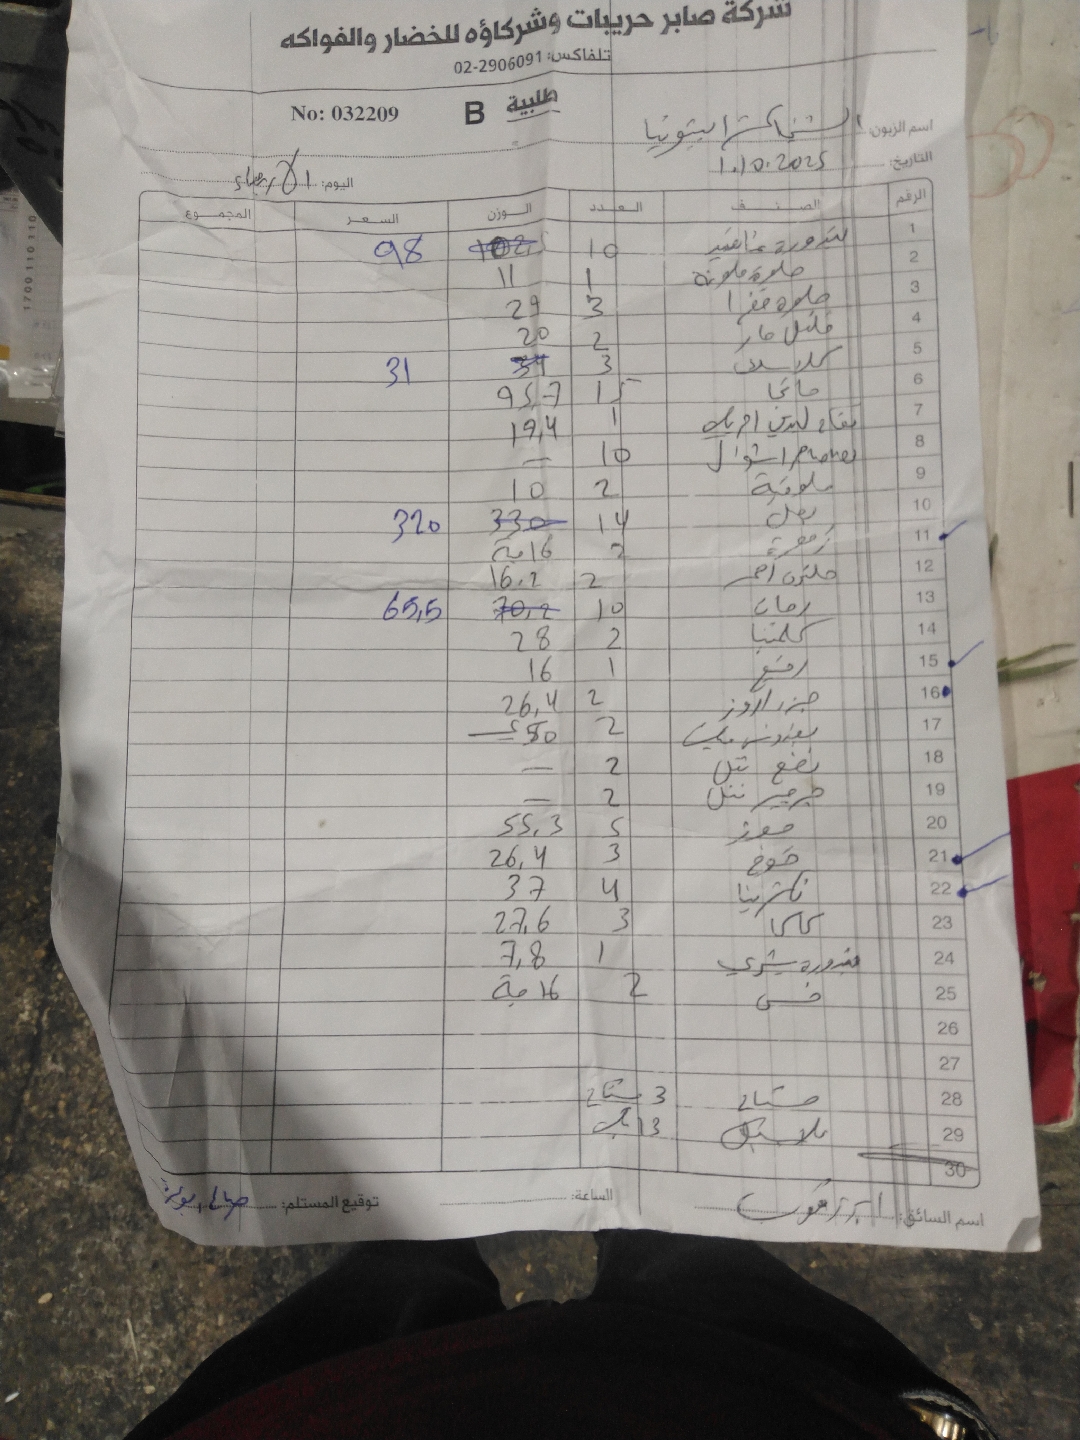 شركة صابر حريبات وشركاؤه للخضار والفواكه
تلفاكس: 02-2906091
No: 032209 B طلبية
اسم الزبون:
التاريخ: 1.10.2025
اليوم: الأربعاء
الرقم الصنف العدد الوزن السعر المجموع
1 بندورة عناقيد 10 98
2 حلوة ملونة 1 11
3 حلوة خضرا 3 29
4 فلفل حار 2 20
5 3 31
6 15 95,7
7 1 19,4
8 10 —
9 ملوخية 2 10
10 بصل 14 330 320
11 زهرة 2 16 حبة
12 2 16,2
13 رمان 10 70,2 65,5
14 كلمنتينا 2 28
15 1 16
16 جزر 2 26,4
17 بقدونس 2 50
18 نعنع 2 —
19 جرجير 2 —
20 موز 5 55,3
21 خوخ 3 26,4
22 نكترينا 4 37
23 كاكا 3 27,6
24 بندورة شيري 1 7,8
25 خس 2 16 حبة
26
27
28 مشتاح 3 مشتاح
29 بلاستيك 13
30
اسم السائق:
الساعة:
توقيع المستلم:
1700 110 110